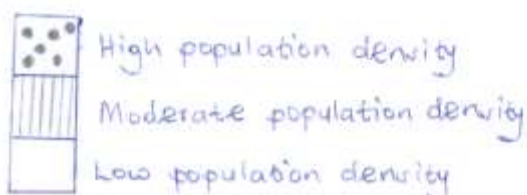 High population density
Moderate population density
Low population density